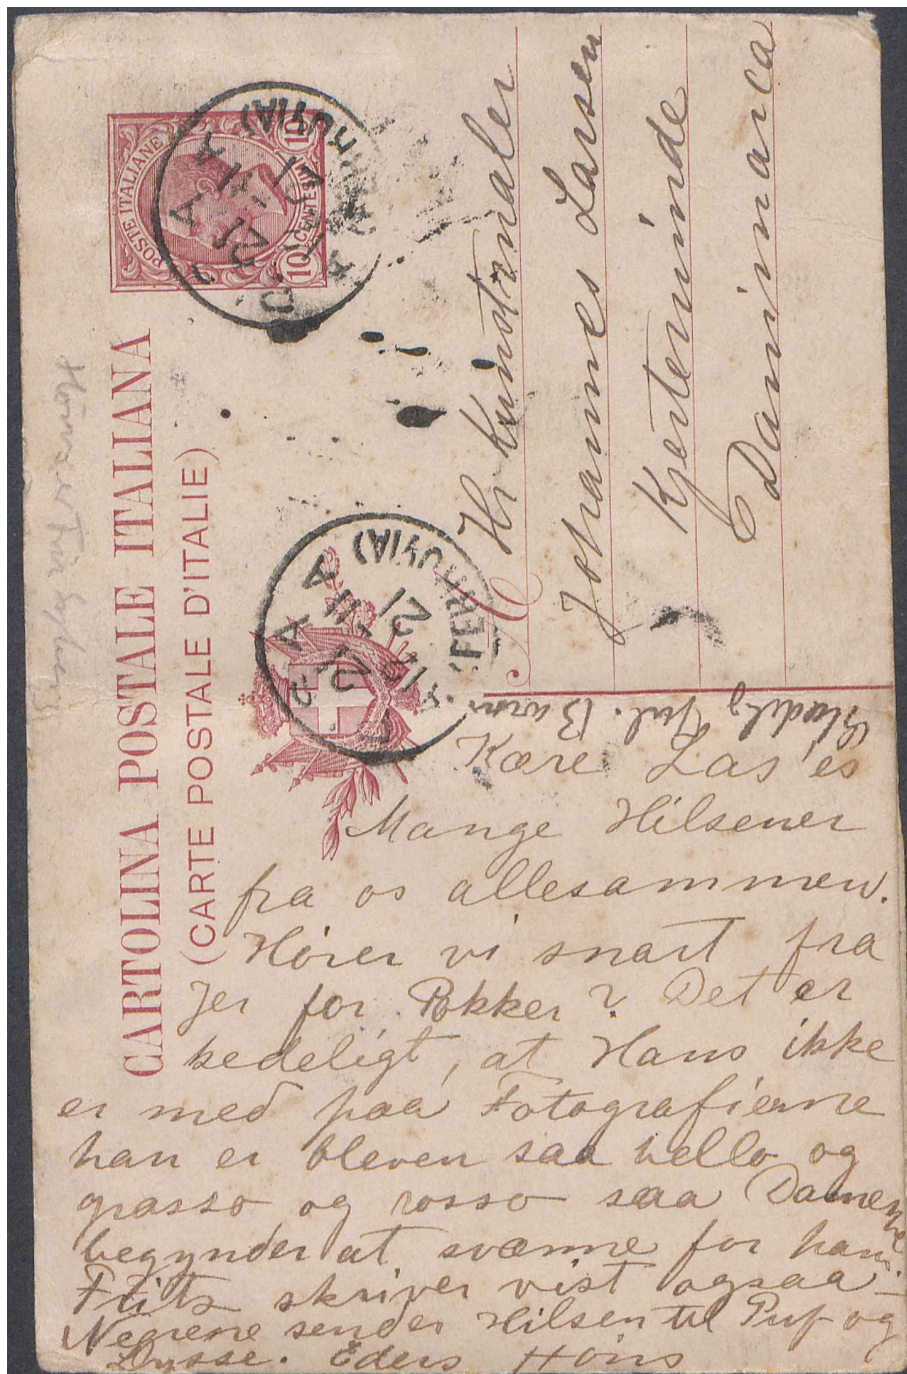 CARTOLINA POSTALE ITALIANA
(CARTE POSTALE D'ITALIE)
POSTE ITALIANE
10 CENTESIMI 10
PISA
(FERROVIA)
21
PISA
(FERROVIA)
21
Hr Kunstmaler
Johannes Larsen
Kjerteminde
Danimarca
Kære Las'es
Mange Hilsener
fra os allesammen.
Hører vi snart fra
Jer for Pokker? Det er
kedeligt, at Hans ikke
er med paa Fotografierne
han er bleven saa bello og
grasso og rosso saa Damerne
begynder at sværme for ham.
Fritz skriver vist ogsaa –
Negrene sender Hilsen til Puf og
Lysse. Eders Höns